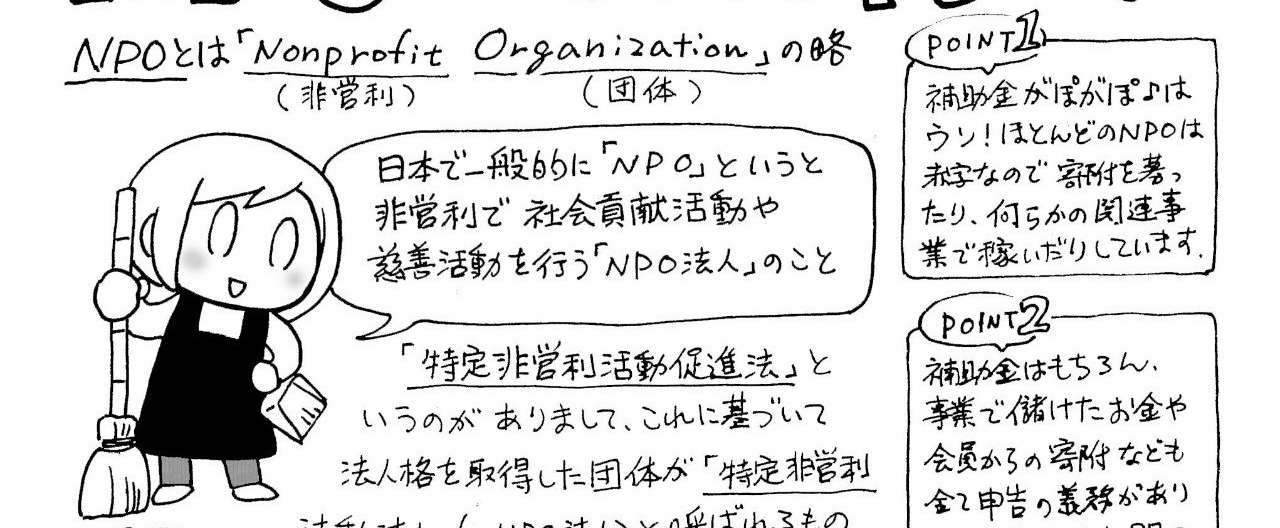 NPOとは「Nonprofit Organization」の略
(非営利) (団体)
日本で一般的に「NPO」というと
非営利で社会貢献活動や
慈善活動を行う「NPO法人」のこと
「特定非営利活動促進法」と
いうのがありまして、これに基づいて
法人格を取得した団体が「特定非営利
と呼ばれるもの
POINT1
補助金がぽがぽ♪は
ウソ!ほとんどのNPOは
赤字なので寄附を募っ
たり、何らかの関連事
業で稼いだりしています.
POINT2
補助金はもちろん、
事業で儲けたお金や
会員からの寄附なども
全て申告の義務があり